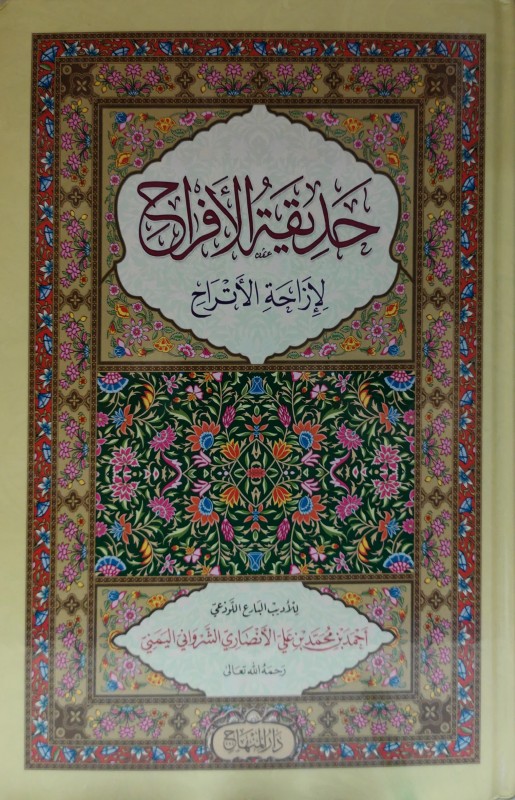 حَدِيقَةُ الأَفرَاحِ
لِإزَاحَةِ الأَترَاحِ
لِلأديبِ البَارعِ اللَّوذَعيِّ
أحمَد بن محمَّد بن علي الأَنصَاري الشَّرواني اليمني
رَحمَهُ الله تعَالى
دَارُ المِنْهَاجِ